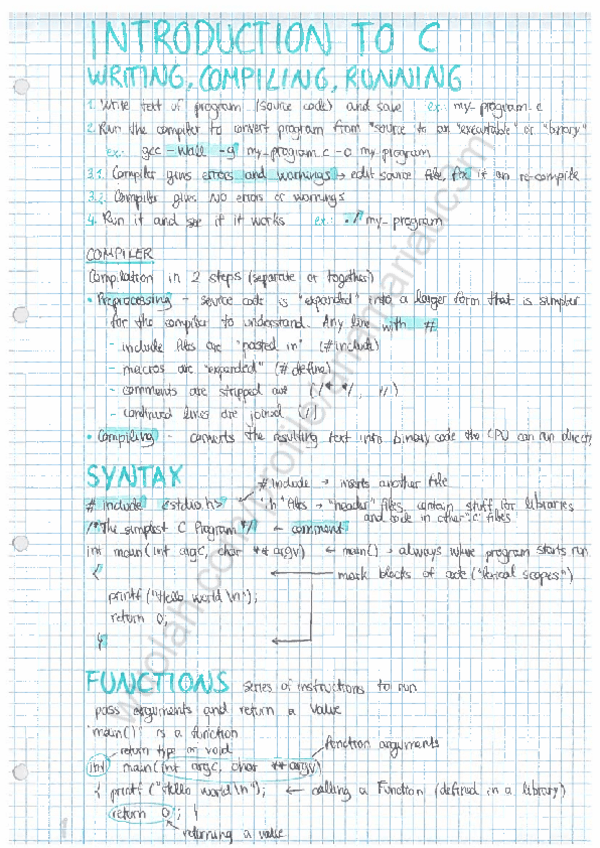 INTRODUCTION TO C
WRITING, COMPILING, RUNNING
1. Write text of program (source code) and save ex: my_program.c
2. Run the compiler to convert program from "source" to an "executable" or "binary"
ex: gcc -Wall -g my_program.c -o my_program
3.1. Compiler gives errors and warnings → edit source file, fix it an re-compile
3.2. Compiler gives NO errors or warnings
4. Run it and see if it works ex: ./my_program
COMPILER
Compilation in 2 steps (separate or together)
• Preprocessing - source code is "expanded" into a larger form that is simpler
for the compiler to understand. Any line with #
- include files are "pasted in" (#include)
- macros are "expanded" (#define)
- comments are stripped out (/* */, //)
- continued lines are joined (/)
• Compiling - converts the resulting text into binary code the CPU can run directly
SYNTAX
#include → inserts another file
#include <stdio.h> ".h" files → "header" files, contain stuff for libraries
and code in other ".c" files
/*The simplest C Program*/ ← comment
int main(int argc, char **argv) ← main() → always where program starts run
{ ← mark blocks of code ("lexical scopes")
printf("Hello world\n");
return 0;
} ←
FUNCTIONS series of instructions to run
pass arguments and return a value
'main()' is a function
return type or void function arguments
int main(int argc, char **argv)
{ printf("Hello world\n"); ← calling a Function (defined in a library)
return 0; }
returning a value
worlah.com/profile/anamariau.com